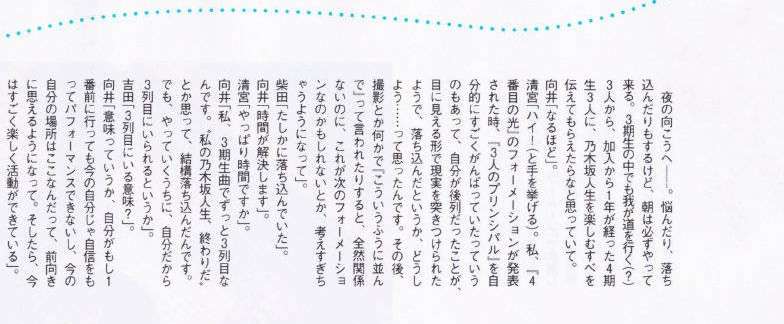 夜の向こうへ――。悩んだり、落ち
込んだりもするけど、朝は必ずやって
来る。3期生の中でも我が道を行く(?)
3人から、加入から1年が経った4期
生3人に、乃木坂人生を楽しむすべを
伝えてもらえたらなと思っていて。
向井「なるほど」。
清宮「ハイ！(と手を挙げる)。私、『4
番目の光』のフォーメーションが発表
された時、『3人のプリンシパル』を自
分的にすごくがんばっていたっていう
のもあって、自分が後列だったことが、
目に見える形で現実を突きつけられた
ようで、落ち込んだというか、どうし
よう……って思ったんです。その後、
撮影とか何かで『こういうふうに並ん
で』って言われたりすると、全然関係
ないのに、これが次のフォーメーショ
ンなのかもしれないとか、考えすぎち
ゃうようになって」。
柴田「たしかに落ち込んでいた」。
向井「時間が解決します」。
清宮「やっぱり時間ですか」。
向井「私、3期生曲でずっと3列目な
んです。〝私の乃木坂人生、終わりだ〟
とか思って、結構落ち込んだんです。
でも、やっていくうちに、自分だから
3列目にいられるというか」。
吉田「3列目にいる意味？」。
向井「意味っていうか、自分がもし1
番前に行っても今の自分じゃ自信をも
ってパフォーマンスできないし、今の
自分の場所はここなんだって、前向き
に思えるようになって。そしたら、今
はすごく楽しく活動ができている」。